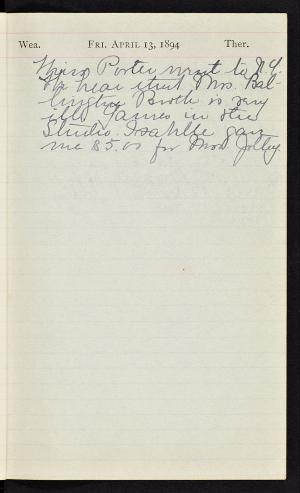 Wea. FRI. APRIL 13, 1894 Ther.
Miss Porter went to N.Y.
We hear that Mrs. Bal-
lington Booth is very
ill. James in the
Studio. Isabelle gave
me $5.00 for Mrs. Jolley